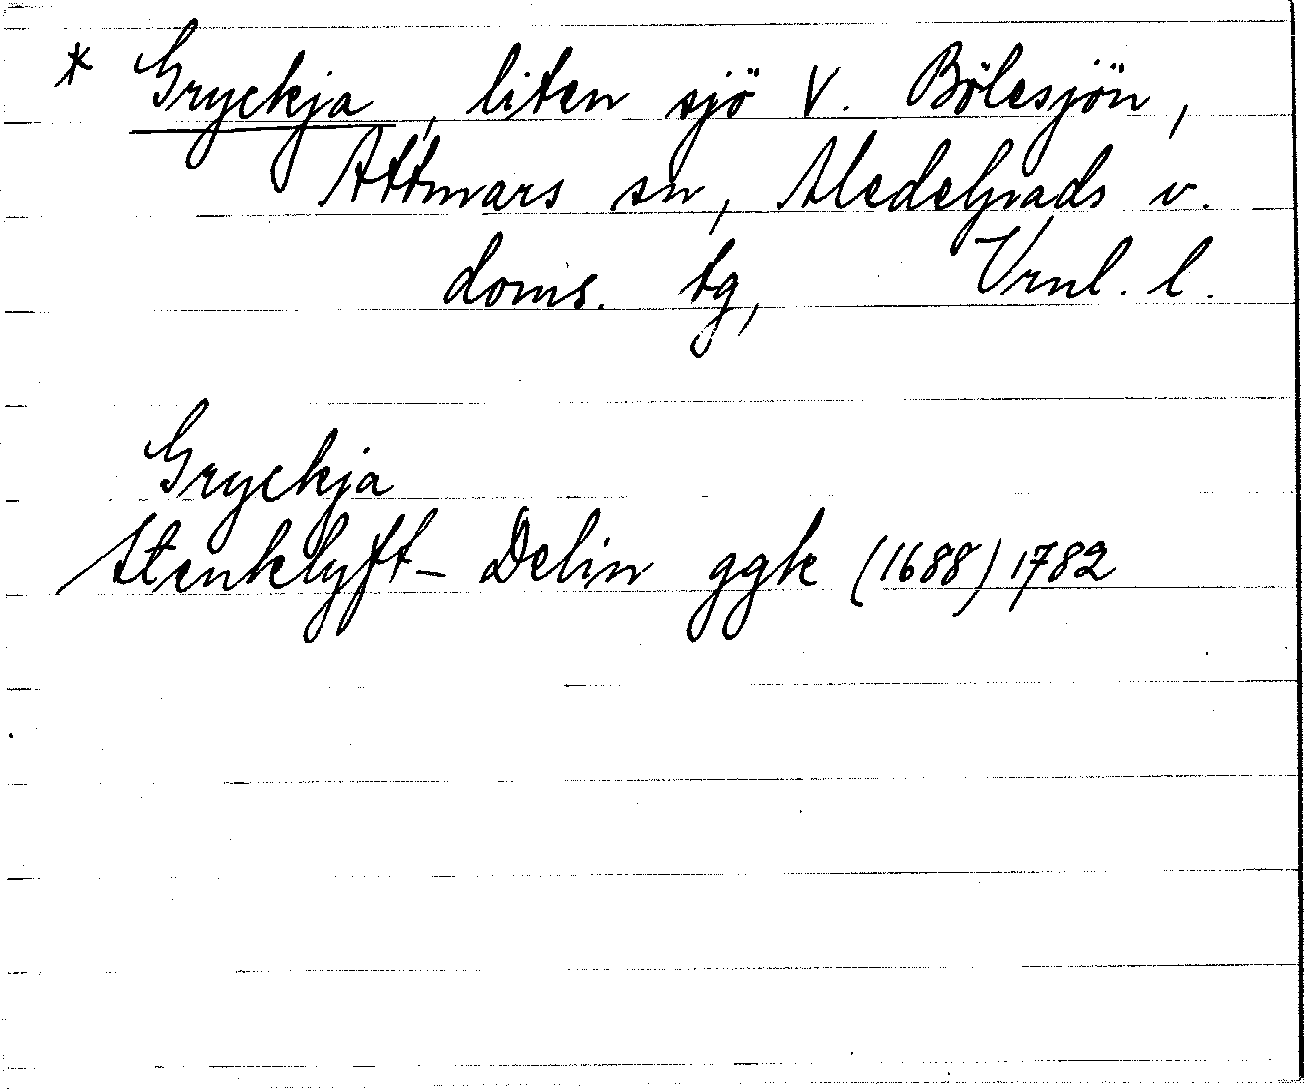 * Gryckja, liten sjö V. Bölesjön,
Attmars sn, Medelpads v.
doms. tg, Vrnl. l.
Gryckja
Stenklyft- Delin ggk (1688) 1782